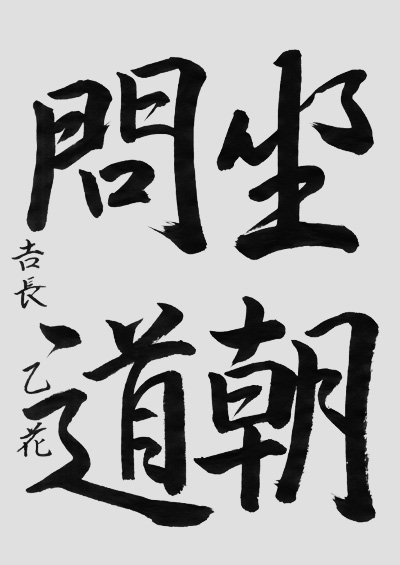 坐朝
問道
吉長乙花